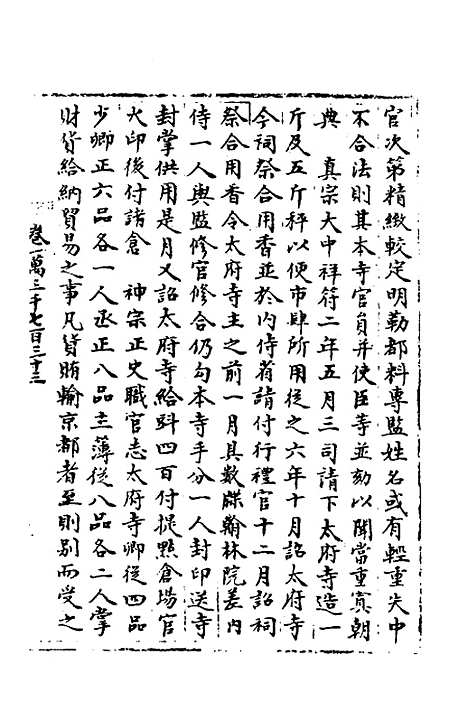 官次第精緻較定明勒都料專監姓名或有輕重失中
不合法則其本寺官員并使臣等並劾以聞當重寘朝
典　真宗大中祥符二年五月三司請下太府寺造一
斤及五斤秤以便市肆所用從之六年十月詔太府寺
令祠祭合用香並於內侍省請付行禮官十二月詔祠
祭合用香令太府寺主之前一月具數牒翰林院差內
侍一人與監修官修合仍勾本寺手分一人封印送寺
封掌供用是月又詔太府寺給㪷四百付提㸃倉場官
火印後付諸倉　神宗正史職官志太府寺卿從四品
少卿正六品各一人丞正八品主薄從八品各二人掌
財貨給納貿易之事凡貨賄輸京都者至則别而受之
卷一萬三千七百三十三